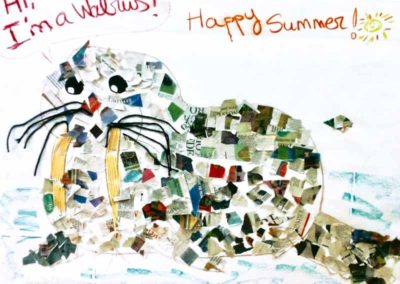 Hi,
I'm a Walrus!
Happy Summer!